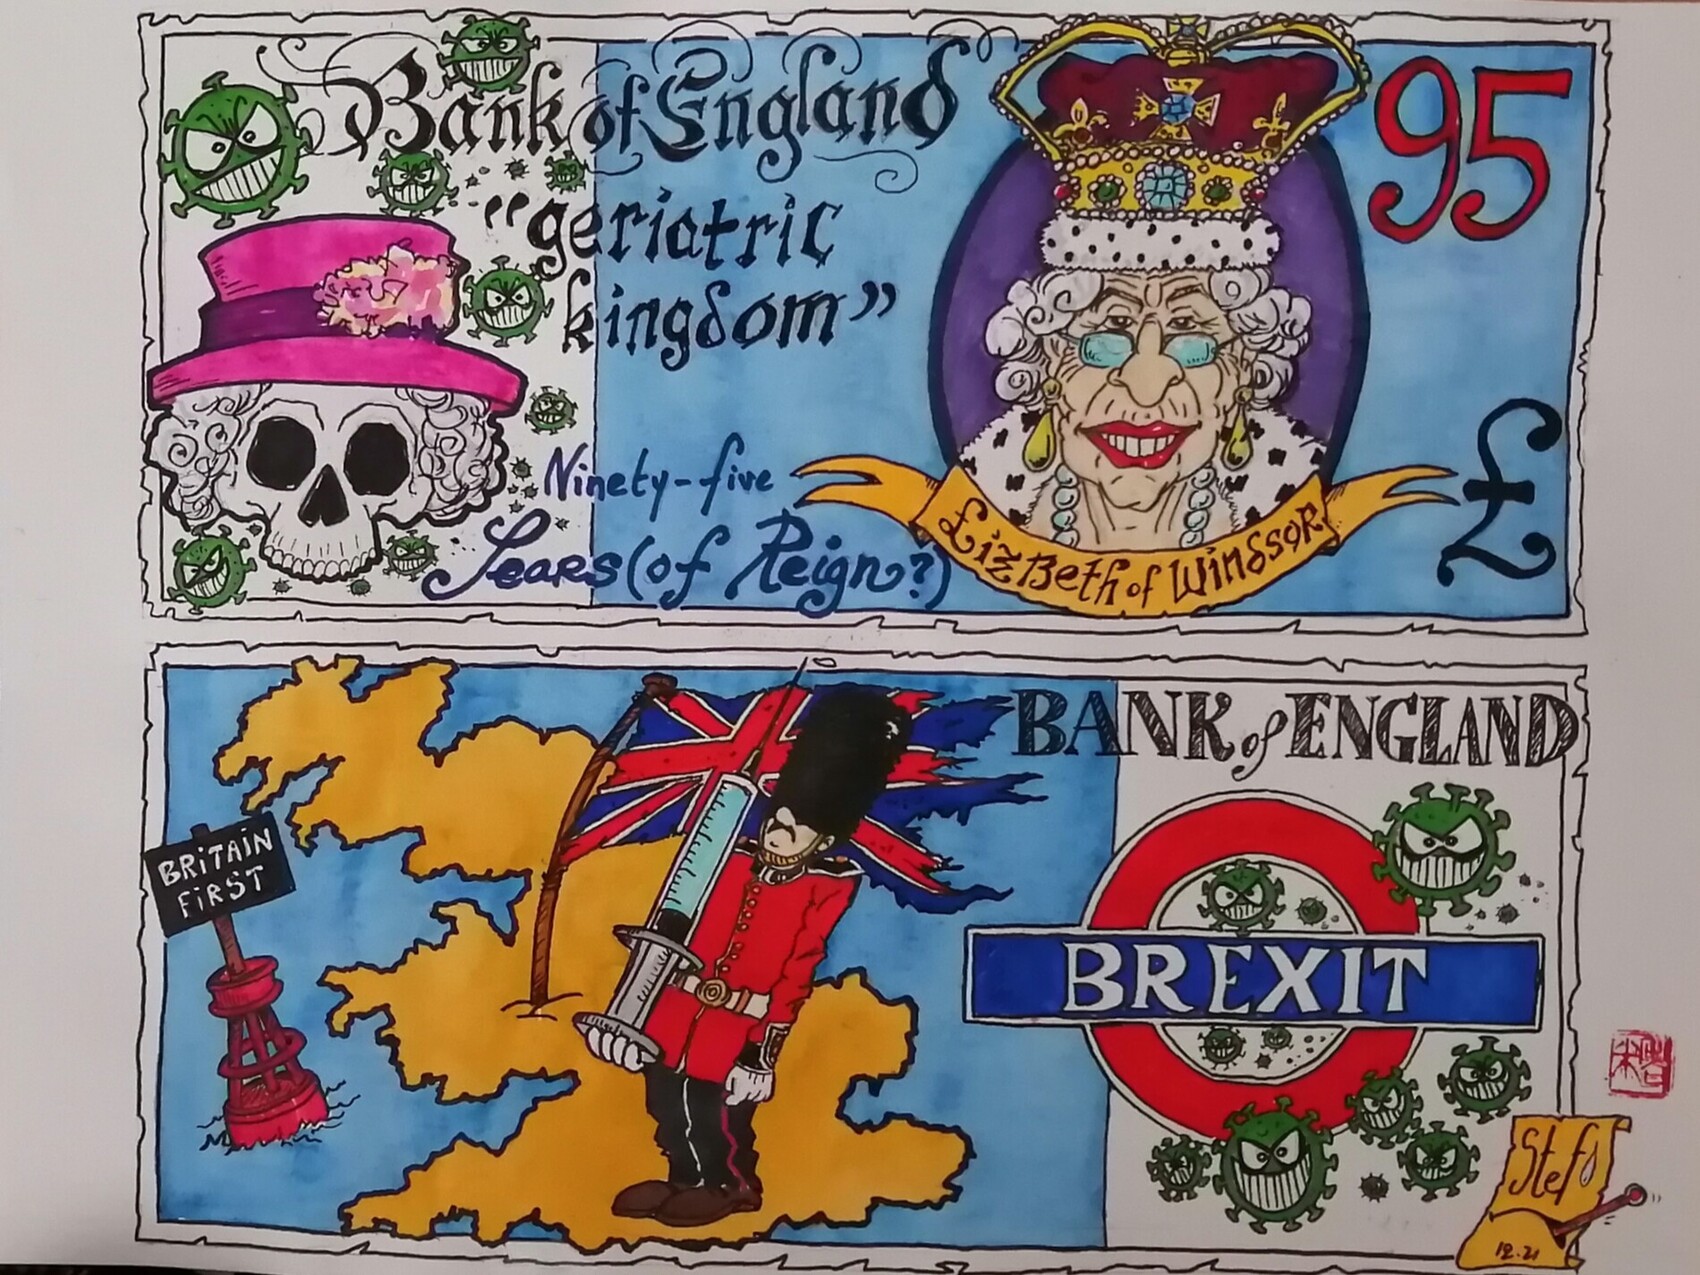 Bank of England
95
"geriatric
kingdom"
Ninety-five
Years (of Reign?)
£izBeth of Windsor
£
BRiTAiN
FiRST
BANK of ENGLAND
BREXIT
Stef
12.21